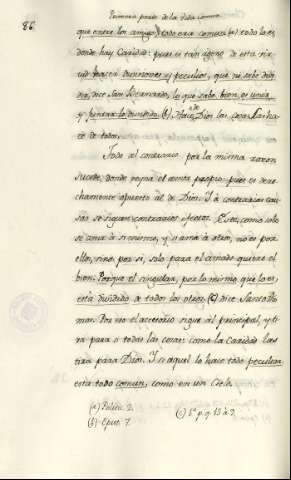 86.
Primera parte de la Vida Comun.
que entre los amigos todo era comun (a) todo lo es
donde hay Caridad: pues es tan ageno de esta vir-
tud hacer divisiones y peculios, que no sabe divi-
dir, dice San Bernardo, lo que sabe bien, es unir,
y juntar lo dividido (b) Hace de Dios las cosas, i las ha-
ce de todos.
Todo al contrario por la misma razon
sucede, donde reyna el amor propio, pues es dere-
chamente opuesto al de Dios. I a contrarias cau-
sas se siguen contrarios efectos. Este, como solo
se ama à si mismo, y si ama à otro, no es por
ello, sino por si, solo para el amado quiere el
bien. Porque el singular, por lo mismo que lo es,
està dividido de todos los otros (c) dice Santo Tho-
mas. Por eso el accesorio sigue al principal, y ti-
ra para si todas las cosas: como la Caridad las
tira para Dios. I si aquel lo hace todo peculiar,
esta todo comun, como en un Cielo.
(a) Politic. 2.
(b) Epist. 7.
(c) 1ª p. q. 13 a 9.